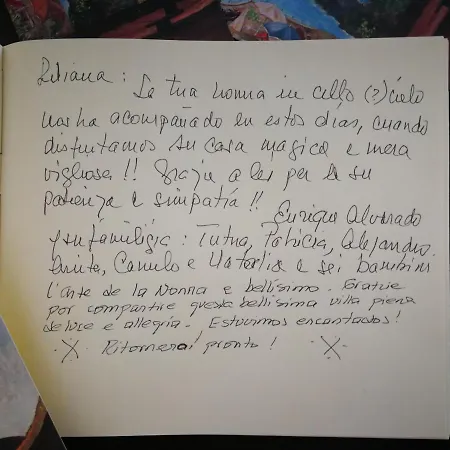 Liliana: La tua nonna in cello (?) cielo
nos ha acompañado en estos días, cuando
disfrutamos su casa magica e mera
vigliosa!! Grazie a lei per la su
patienza e simpatia!!
Enrique Alvarado
y su famiglia: Tutua, Patricia, Alejandro.
Anita, Camilo e Natalia e sei bambini
L'arte de la Nonna e bellísimo. Gratie
por compartire questa bellisima villa piena
de luce e allegria. Estuvimos encantados!
Ritornerai pronto!